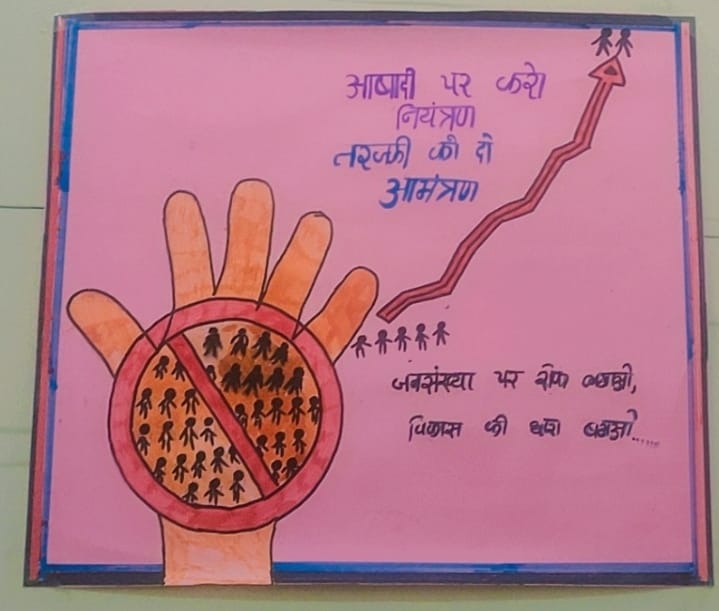 आबादी पर करो
नियंत्रण
तरक्की को दो
आमंत्रण
जनसंख्या पर रोक लगाओ,
विकास की धारा बनाओ......